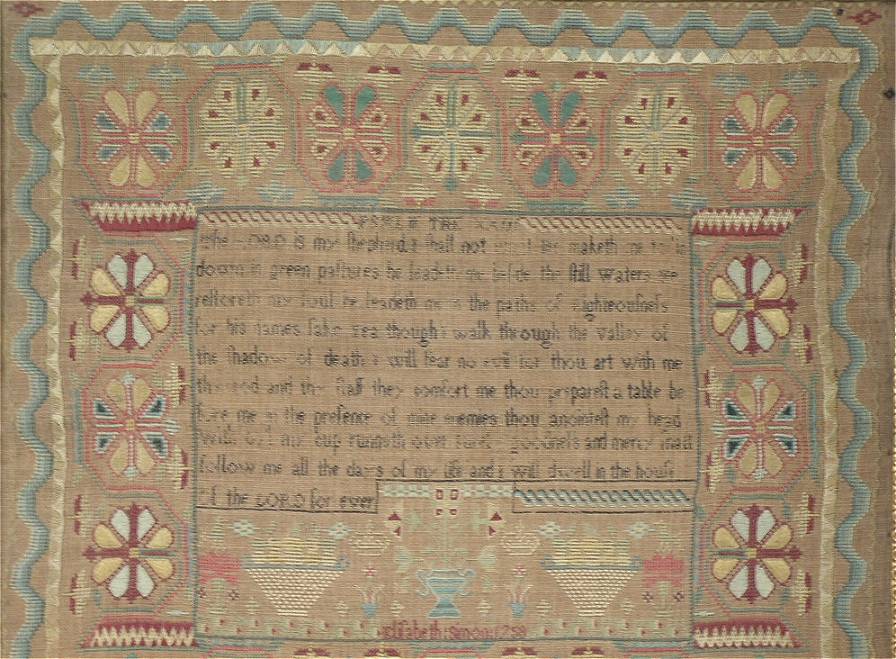 THE XXIII
the LORD is my ſhepherd i ſhall not want he maketh me to lie
down in green paſtures he leadeth me beſide the ſtill waters he
reſtoreth my ſoul he leadeth me in the paths of righteouſneſs
for his names ſake yea though i walk through the valley of
the ſhadow of death i will fear no evil for thou art with me
thy rod and thy ſtaff they comfort me thou prepareſt a table be
fore me in the preſence of mine enemies thou anointeſt my head
with oil my cup runneth over goodneſs and mercy ſhall
follow me all the days of my life and i will dwell in the houſe
of the LORD for ever
eliſabeth